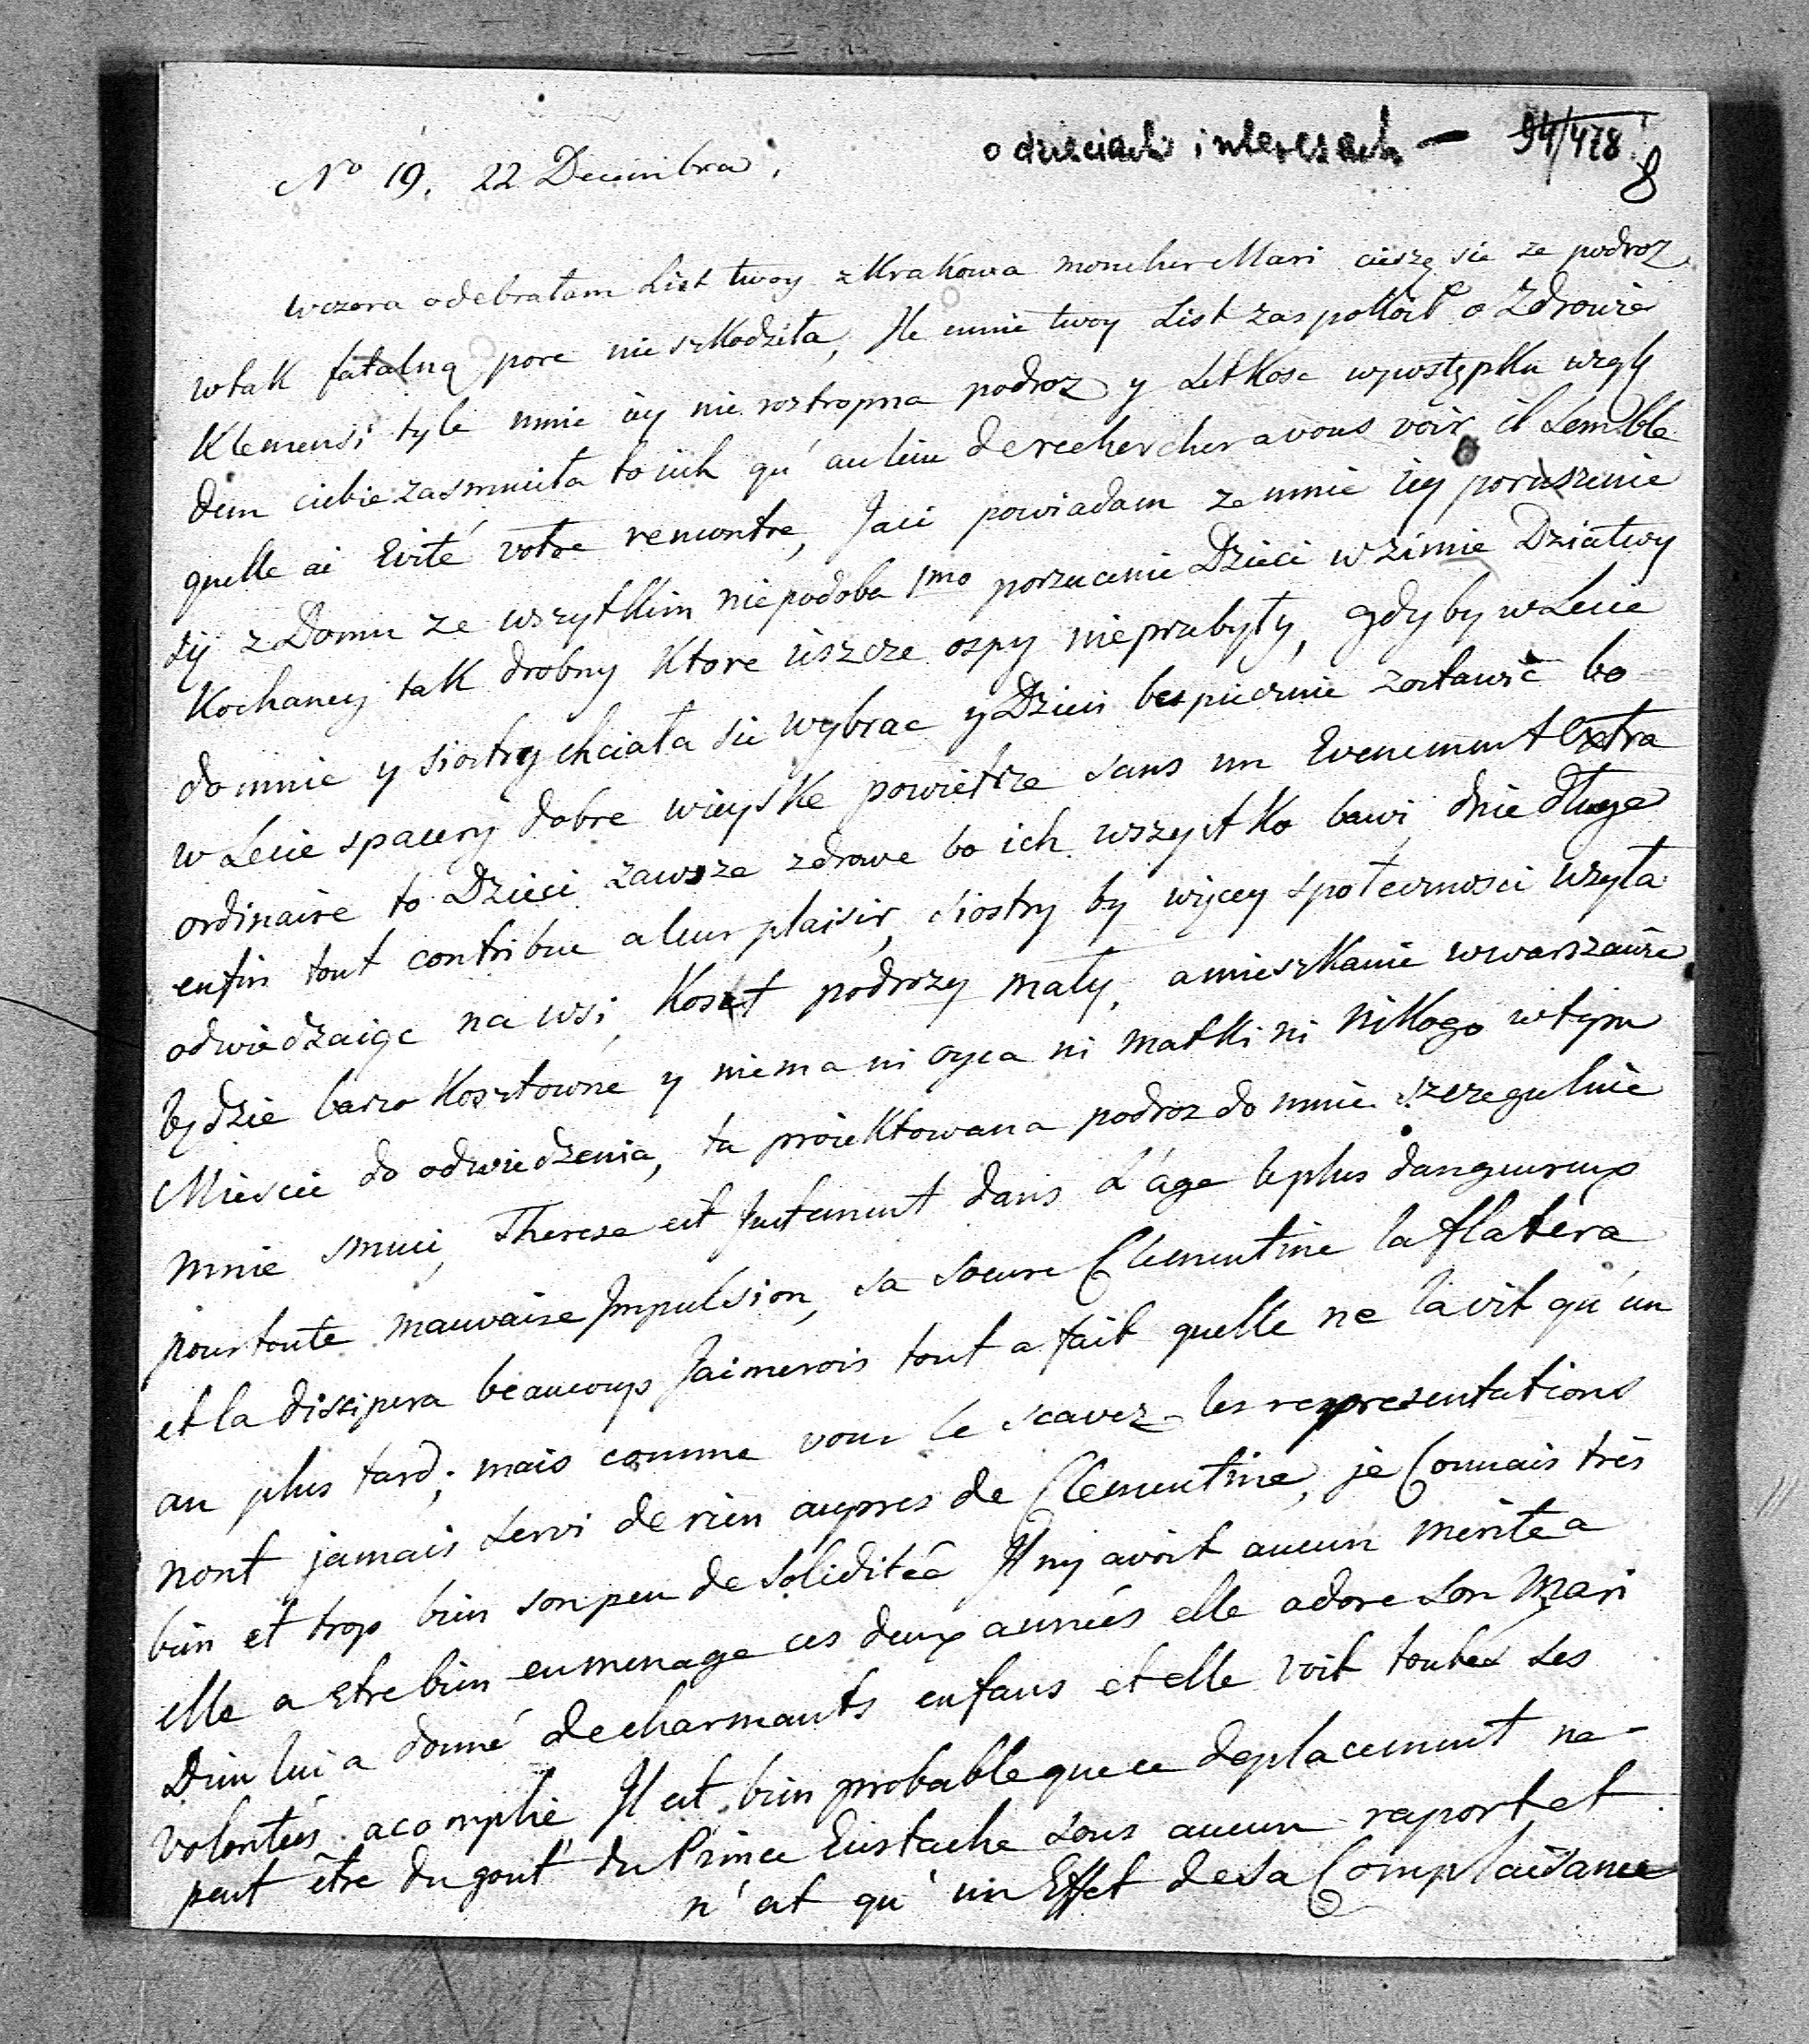 o dzieciach interesach — 94/478
8
No 19. 22 Decembra,
wczora odebrałam List twoy z Krakowa moncher Mari ciesze sie ze podroz
w tak fatalną pore nie szkodziła, Ile mnie twoy List zaspokoił o Zdrowie
Klemensi tyle mnie iey nie roztropna podroz y Letkosc w postępku wzglę
dem ciebie zasmuciła to iuh qu'au lieu de rechercher a vous voir il semble
quelle ai Evité votre rencontre, Jaci powiadam ze mnie iey poruszenie
się z Domu ze wszytkim niepodoba 1mo porzucenie Dzieci w zimie Dziatwy
Kochaney tak drobny Ktore iészcze ospy nieprzebyły, gdyby w Lecie
do mnie y siostry chciała sie wybrac y Dzieci bespiecznie zostawić bo
w Lecie spacery dobre wieyske powietrze sans un Evenement Extra
ordinaire to Dzieci zawsze zdrowe bo ich wszystko bawi dnie długe
enfin tout contribue a leur plaisir, siostry by więcey społecznosci uzyła
odwiedzaiąc na wsi, Koszt podrozy mały, a mieszkanie w warszawie
będzie barzo Kosztowne y niema ni oyca ni matki ni nikogo w tym
Miescie do odwiedzenia, ta proiektowana podroz do mnie szeregulnie
mnie smuci, Therese est Justement dans L'age le plus dangeureux
pour toute mauvaise Impulsion, sa soeure Clementine la flatéra
et la dissipera beaucoup Jaimerois tout a fait quelle ne la vit qu'un
an plus tard; mais comme vous le scavez les representations
nont jamais servi de rien aupres de Clementine, je Connais très
bien et trop bien son peu de soliditée Il ny avoit aucun mérite a
elle a etre bien en menage ces deux années elle adore son Mari
Dieu lui a donné de charmants enfans et elle voit toutes ses
volontées acomplié Il est bien probable que ce deplacement ne
peut être du gout du Prince Eustache sous aucun raport et
n'est qu'un Effet de sa Complaisance